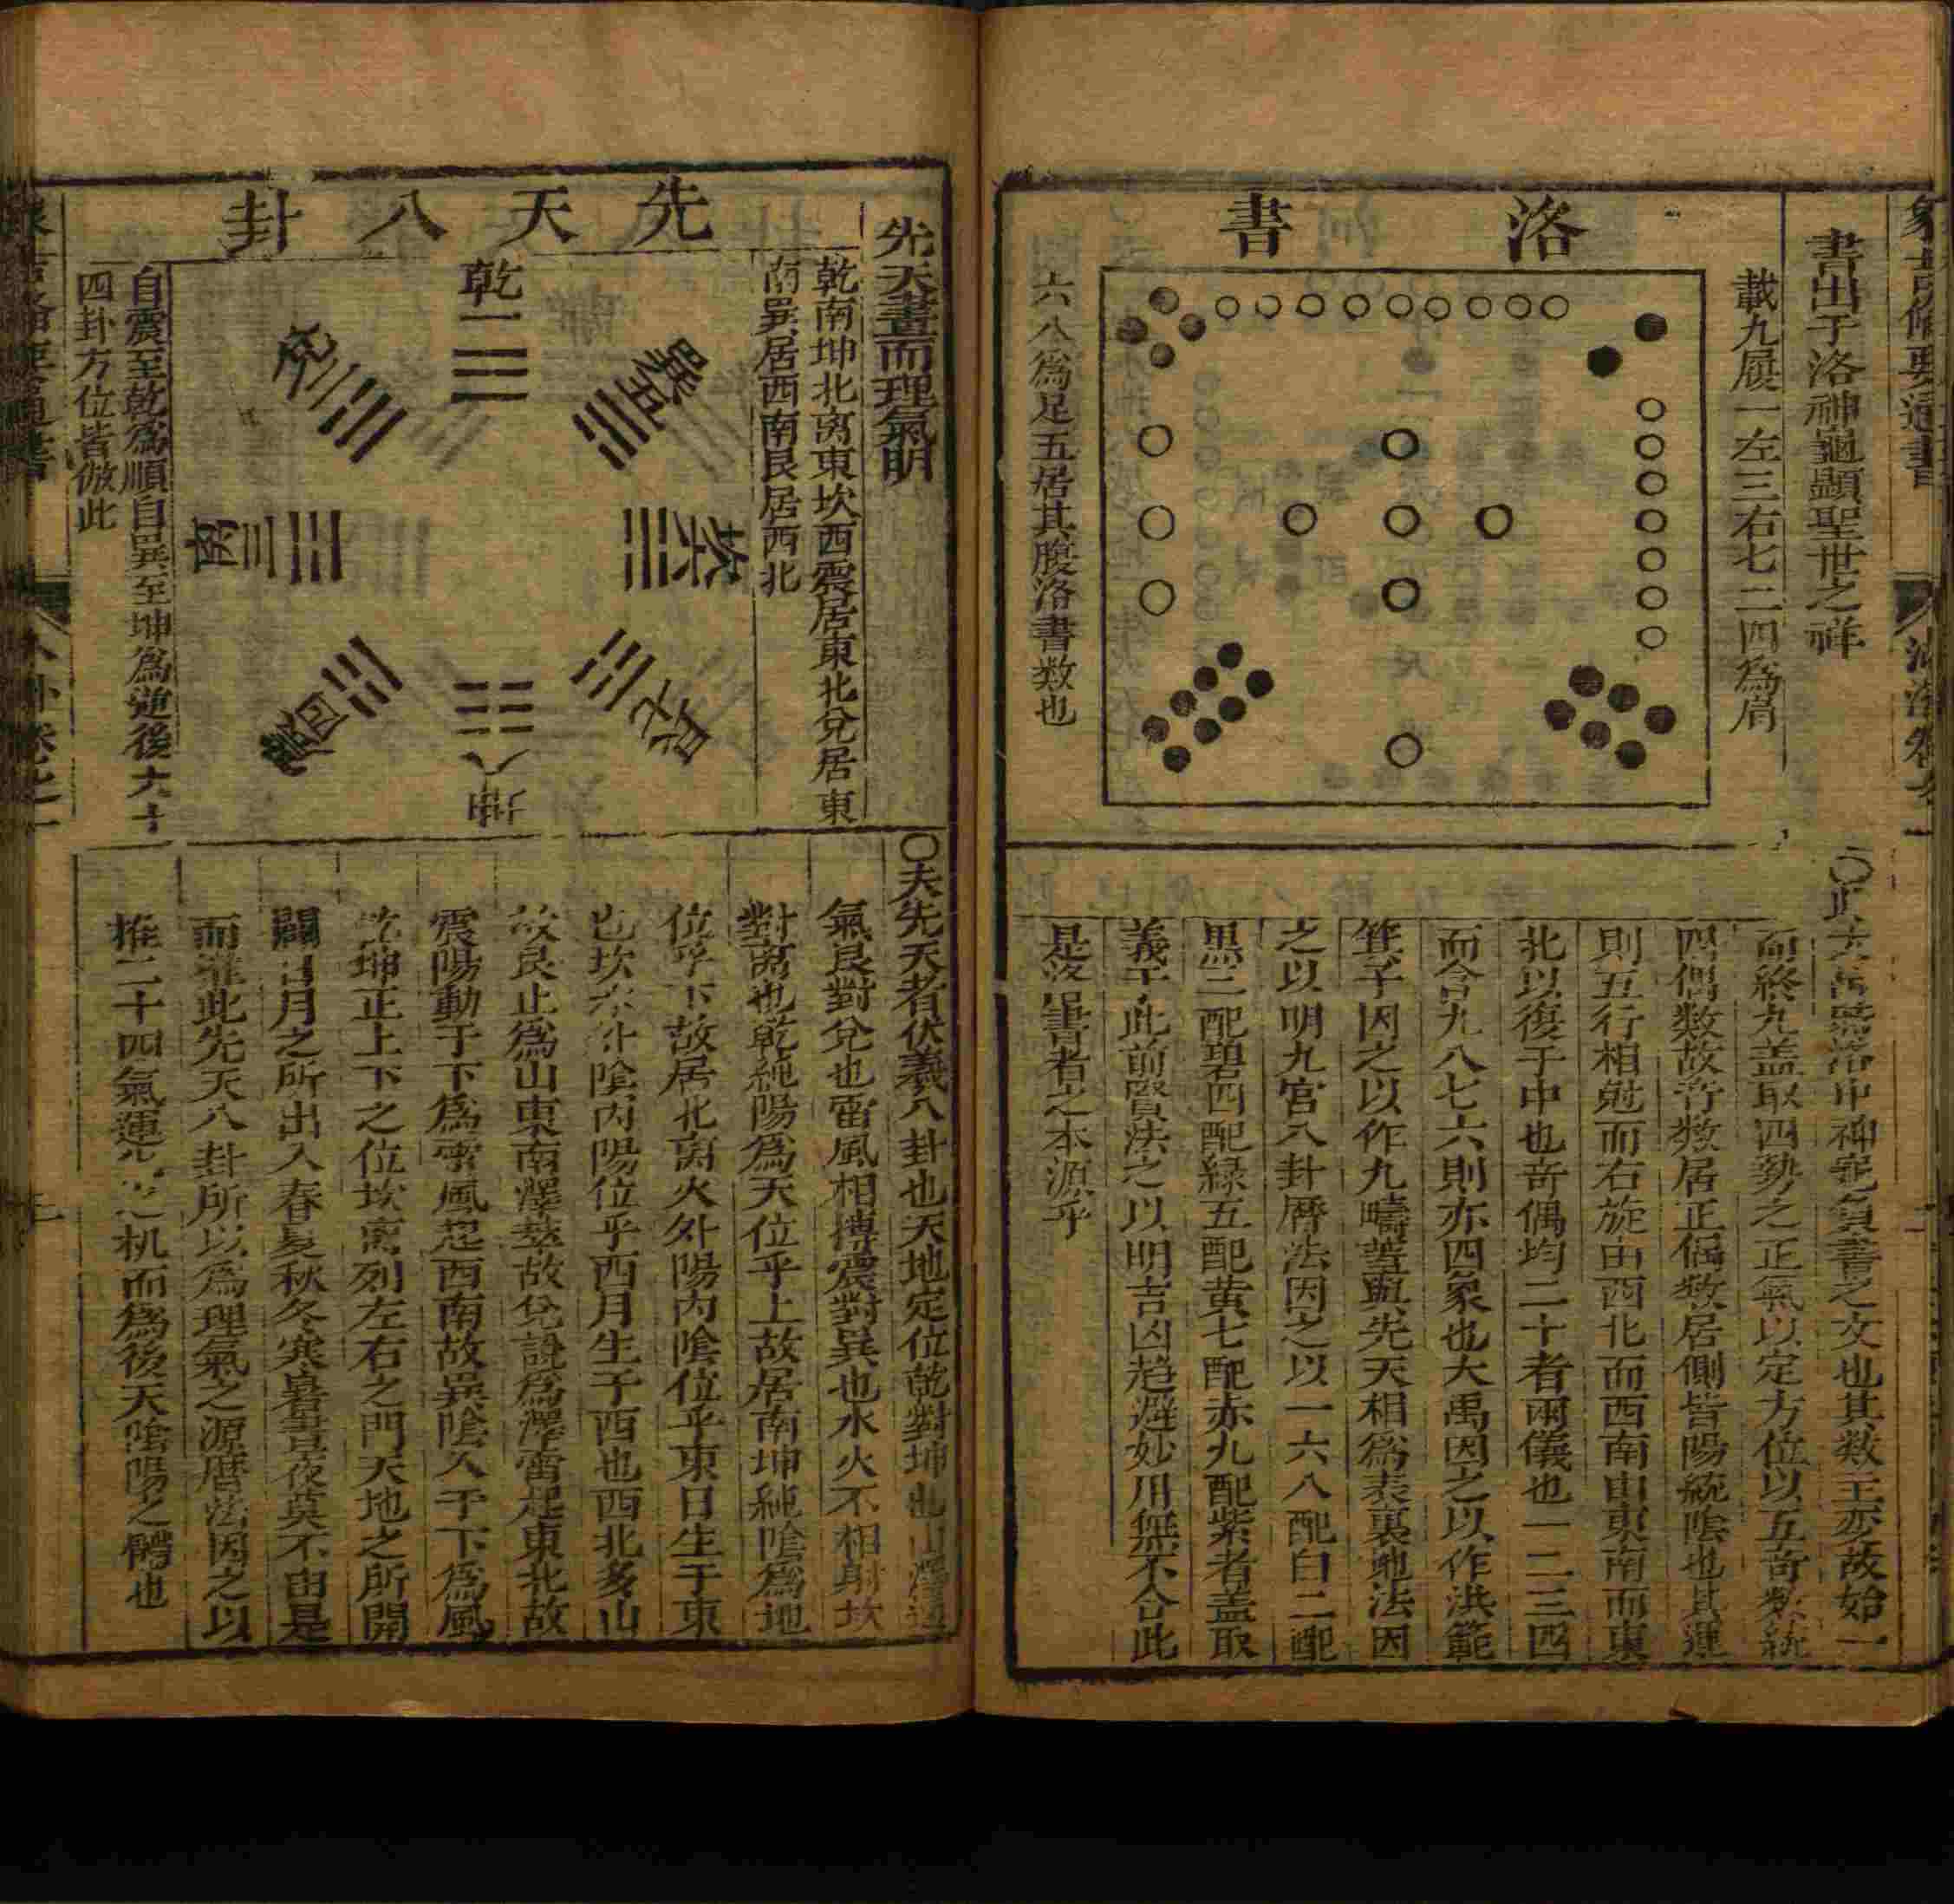 書出于洛神龜顯聖世之祥
洛書
載九履一左三右七二四為肩
六八為足五居其腹洛書数也
而終九盖取四勢之正氣以定方位以五奇数統
四偶数故奇数居正偶数居側皆陽統陰也其運
則五行相尅而右旋由西北而西南由東南而東
北以復于中也奇偶均二十者兩儀也一二三四
而含九八七六則亦四象也大禹因之以作洪範
箕子因之以作九疇蓋與先天相為表裏地法因
之以明九宮八卦曆法因之以一六八配白二配
黒三配碧四配緑五配黄七配赤九配紫者盖取
義于此前賢法之以明吉凶趋避妙用無不合此
是洛書者之本源乎
先天畫而理氣明
先天八卦
乾南坤北离東坎西震居東北兌居東
南巽居西南艮居西北
乾一
巽五
坎六
艮七
坤八
震四
離三
兌二
自震至乾為順自巽至坤為逆後六十
四卦方位皆倣此
〇夫先天者伏羲八卦也天地定位乾對坤也山澤通
氣艮對兌也雷風相搏震對巽也水火不相射坎
對离也乾純陽為天位乎上故居南坤純陰為地
位乎下故居北离火外陽内陰位乎東日生于東
也坎水外陰内陽位乎西月生于西也西北多山
故艮止為山東南澤萃故兌說為澤雷起東北故
震陽動于下為雷風起西南故巽陰入于下為風
乾坤正上下之位坎离列左右之門天地之所開
闢日月之所出入春夏秋冬寒暑晝夜莫不由是
而推此先天八卦所以為理氣之源曆法因之以
推二十四氣運之机而為後天陰陽之體也